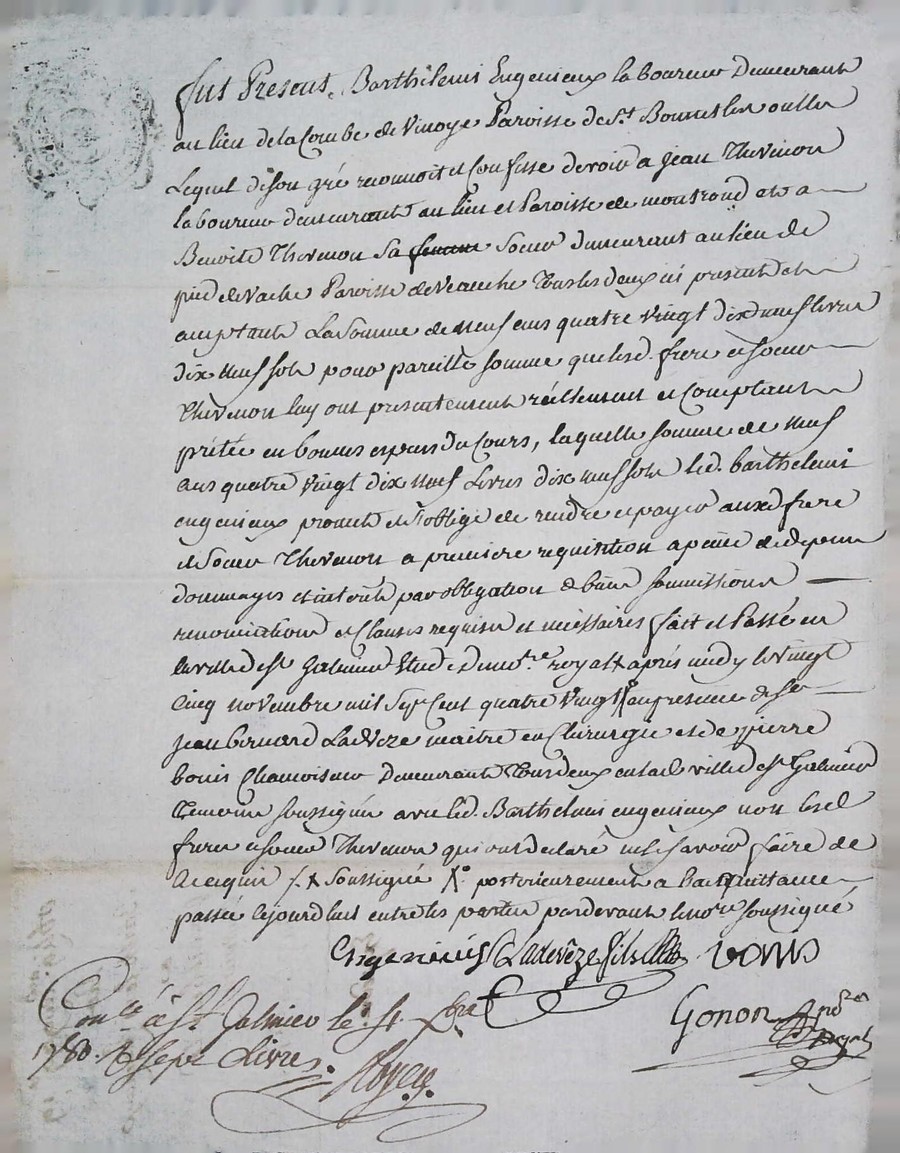 fut Present, Barthelemi Engenieux laboureur Demeurant
au lieu de la Combe de Vinoye Paroisse de St. Bonnet les oulles
Lequel de son gré reconnoit et Confesse devoir a jean Thevenon
laboureur demeurant au lieu et Paroisse de montrond et a
Benoite Thevenon sa femme soeur demeurant au lieu de
pied de vache Paroisse de Veauche Tous les deux ici present et
acceptants La somme de Neuf cens quatre vingt dix neuf livres
dix neuf sols pour pareille somme que lesd. frere et soeur
Thevenon luy ont presentement réellement et Comptant
prétée en bonnes especes du Cours, laquelle somme de neuf
cens quatre vingt dix neuf Livres dix neuf sols led. barthelemi
engenieux promet et s'oblige de rendre et payer auxd frere
et soeur Thevenon a premiere requisition a peine de depens
dommages et interets par obligation de biens soumissions
renonciations et Clauses requises et nécéssaires fait et Passé en
la ville de st Galmier Etude du not.re royal x après midy le vingt
Cinq novembre mil sept Cent quatre vingt en presence de sr
jean bernard Ladveze maitre en Chirurgie et de pierre
bonis Chamoiseur Demeurants Tous deux en lad. ville de st Galmier
Temoins soussignés avec led. Barthelemi engenieux non lesd
frere et soeur Thevenon qui ont declaré ne sçavoir faire de
ce enquis /. x soussigné posterieurement a la quittance
passée cejourdhui entre les parties pardevant le no.re soussigné
Engenieux Ladevèze fils bonis
Gonon
Con.lé à St. Galmier le
1780. R. sept Livres.